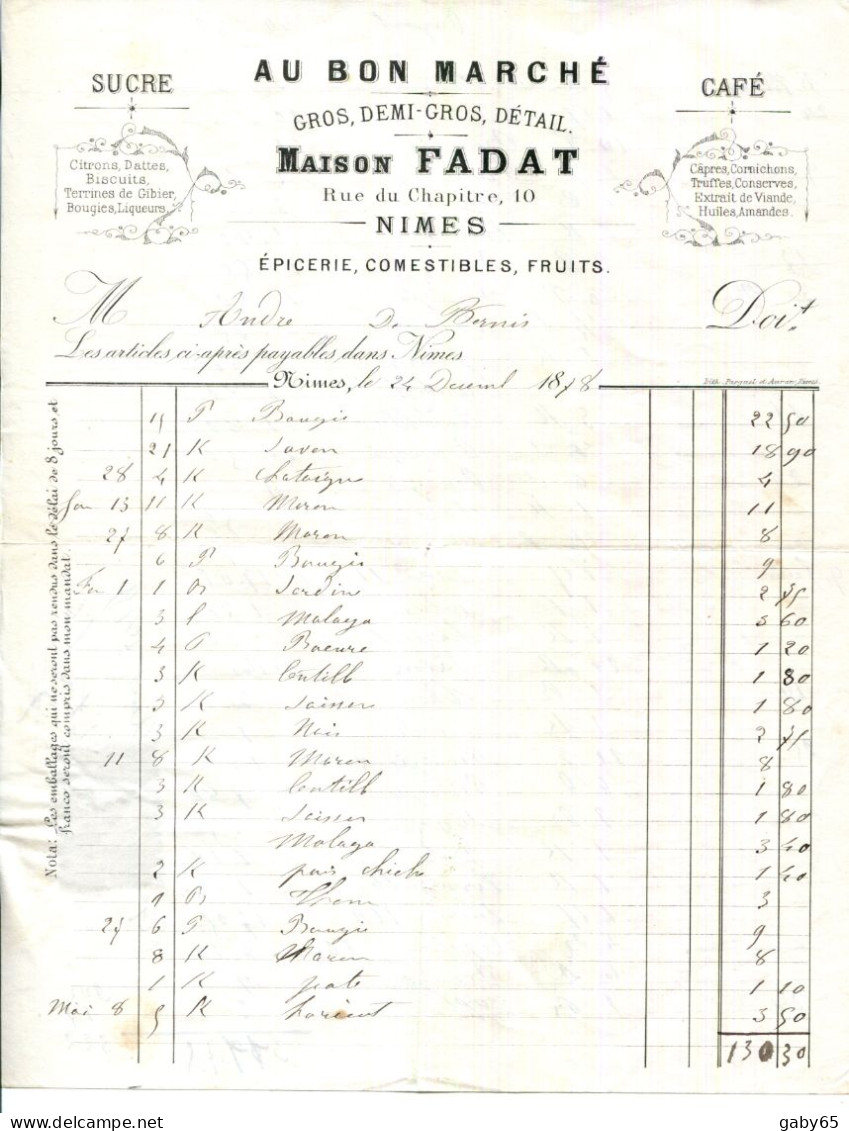 AU BON MARCHÉ
SUCRE
CAFÉ
GROS, DEMI-GROS, DÉTAIL.
MAISON FADAT
Rue du Chapitre, 10
NIMES
ÉPICERIE, COMESTIBLES, FRUITS.
Citrons, Dattes,
Biscuits,
Terrines de Gibier,
Bougies, Liqueurs.
Câpres, Cornichons,
Truffes, Conserves,
Extrait de Viande,
Huiles, Amandes.
M André De Bernis Doit
Les articles ci-après payables dans Nimes
Nimes, le 24 1878
15 P Bougis 22 50
21 K Savon 18 90
28 4 K 4
13 11 K Maron 11
27 8 K Maron 8
6 P Bougis 9
1 1 Sardin 2 75
3 l Malaga 3 60
4 P Baeure 1 20
3 K Lentill 1 80
3 K 1 80
3 K 2 75
11 8 K Maron 8
3 K Lentill 1 80
3 K 1 80
Malaga 3 40
2 K pois chich 1 40
1 Thon 3
27 6 P Bougis 9
8 K Maron 8
1 K pate 1 10
Mai 8 5 K 3 50
130 30
Nota: Les emballages qui ne seront pas rendus dans le délai de 8 jours et
franco seront compris dans mon mandat.
gaby65